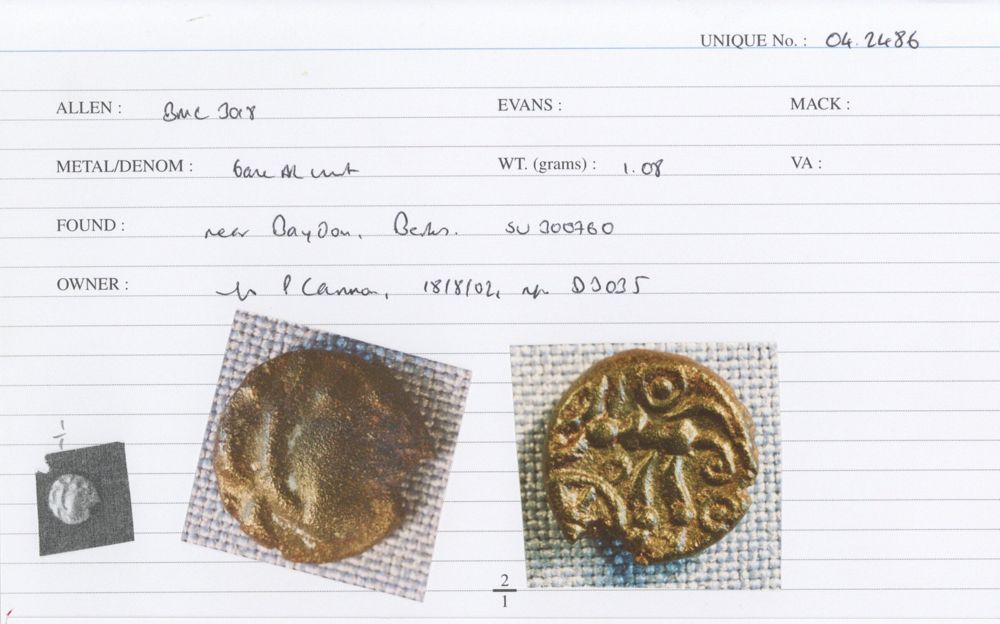 UNIQUE No. : 04.2486
ALLEN : BMC 3018 EVANS : MACK :
METAL/DENOM : base AR unit WT. (grams) : 1.08 VA :
FOUND : near Baydon, Berks. SU 300760
OWNER : P Cannon, 18/8/02, D3035
1
1
2
1